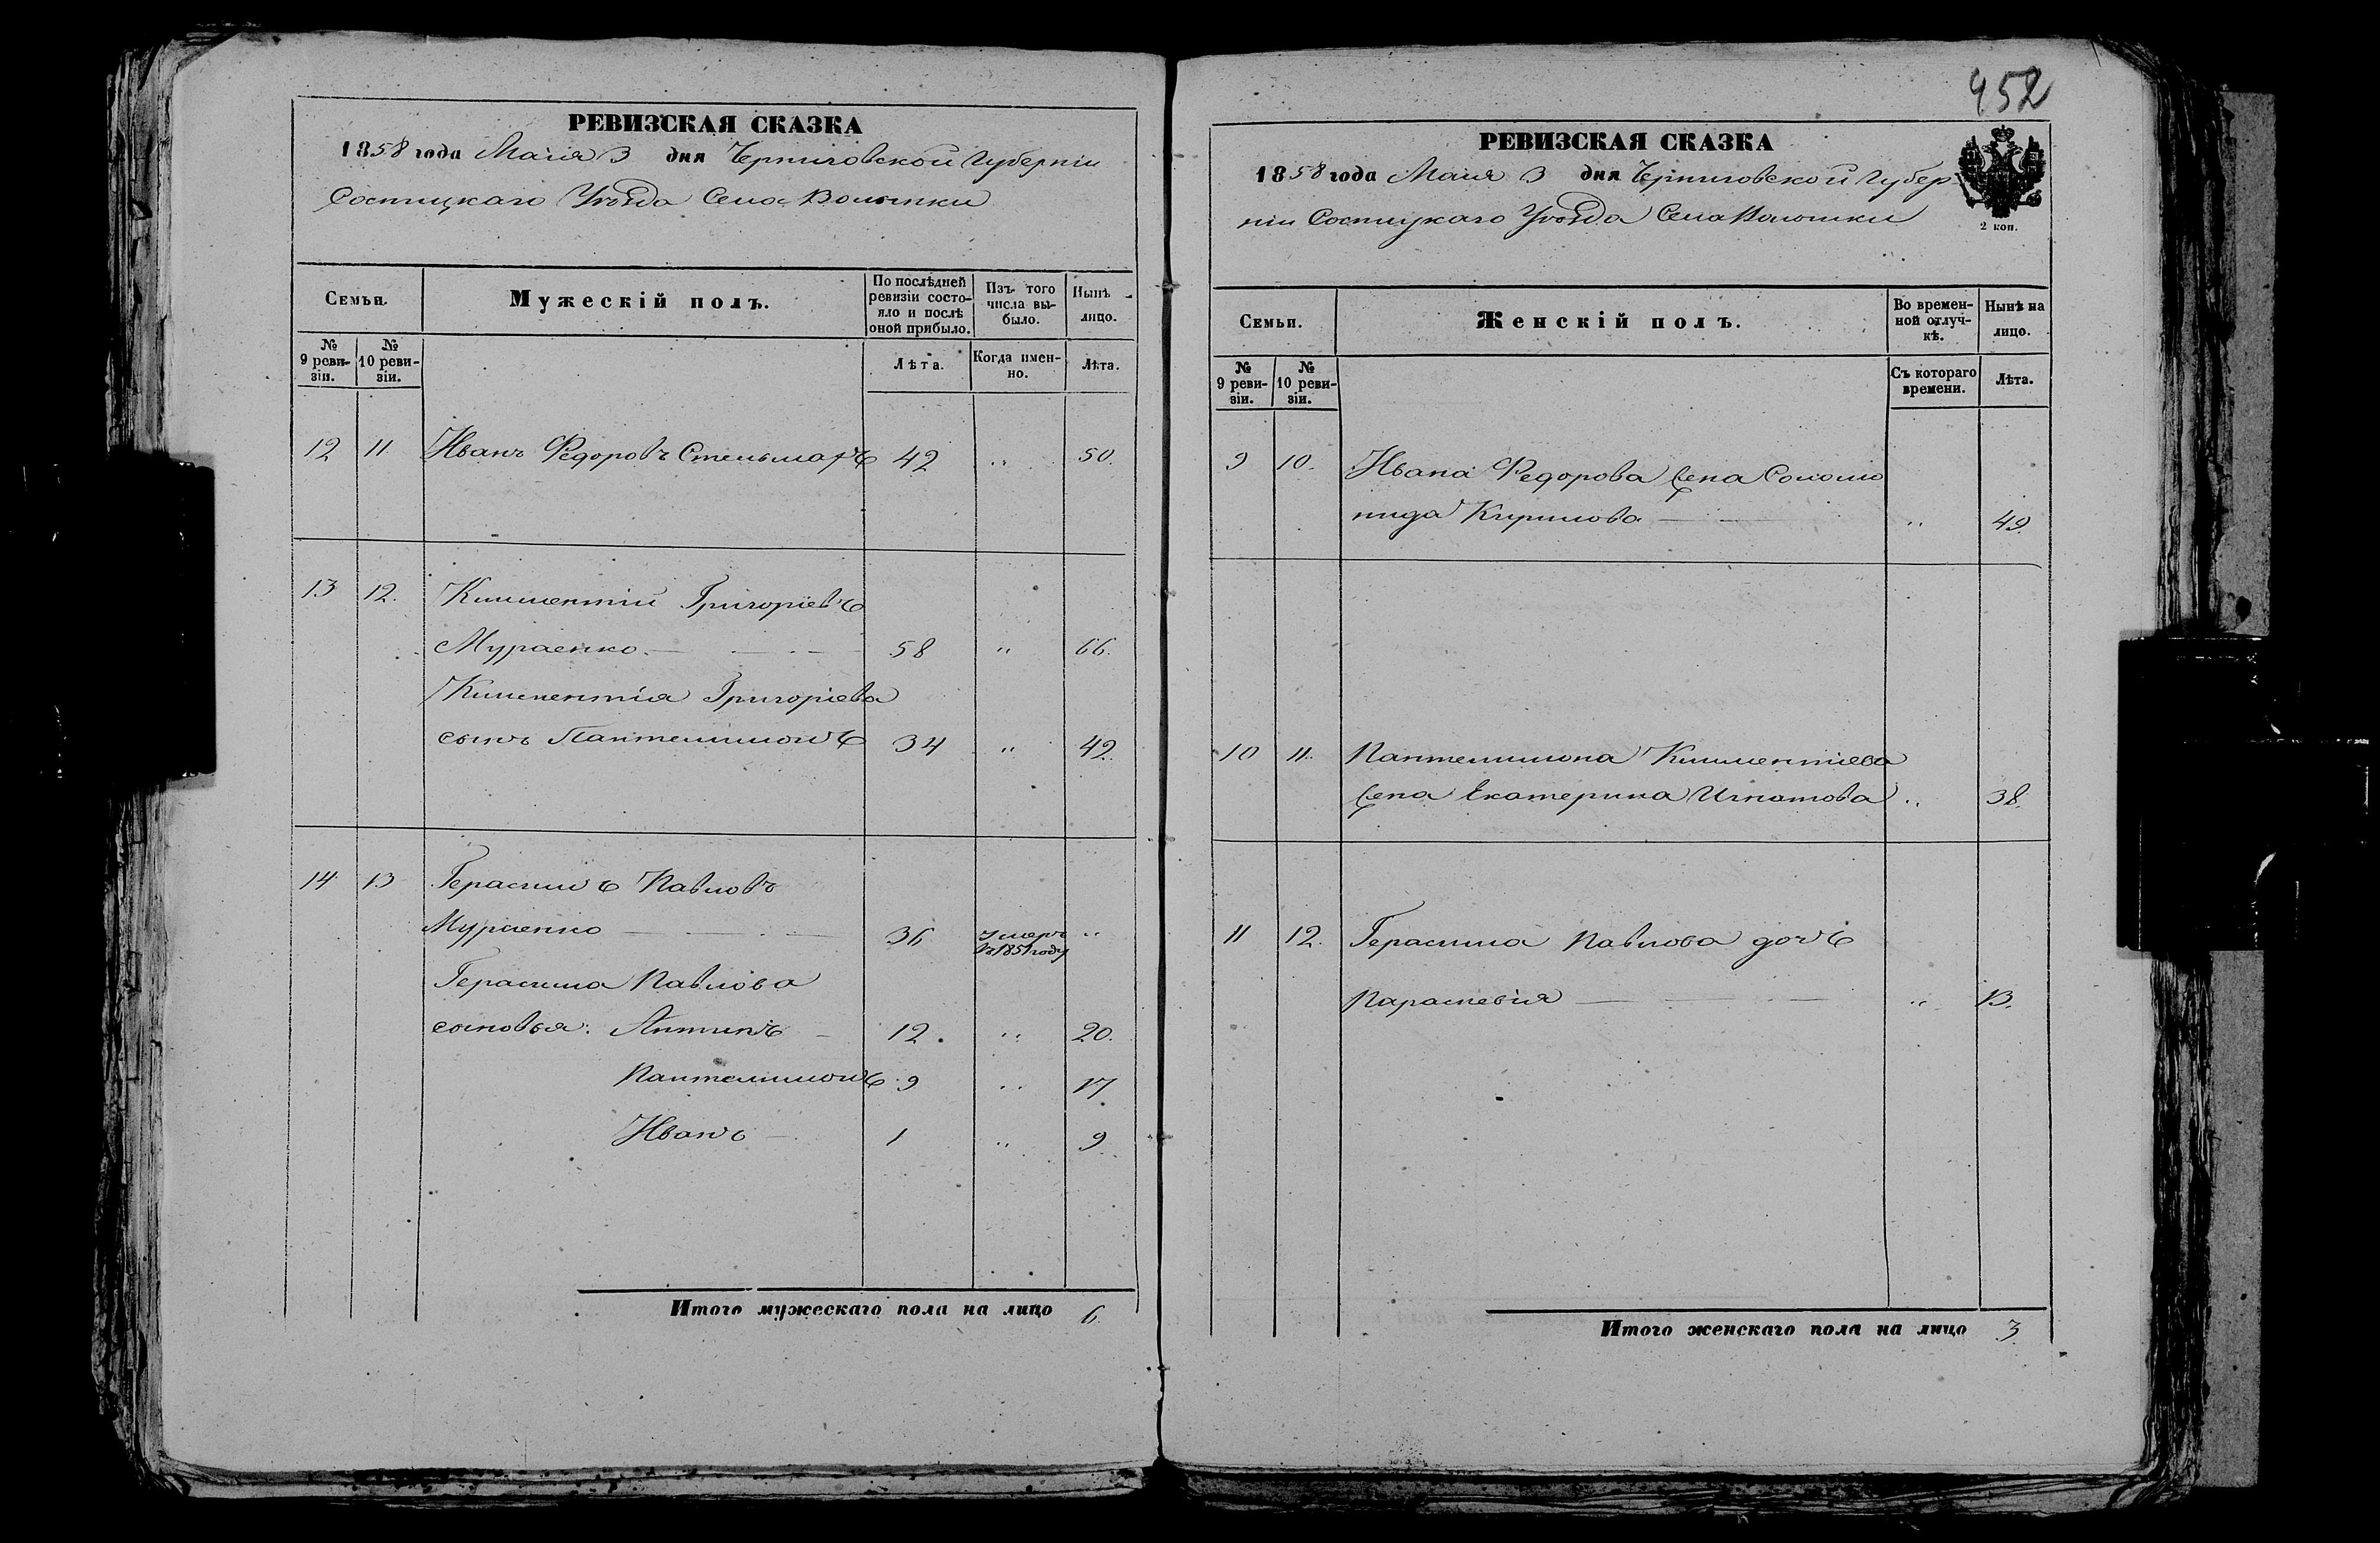 452
РЕВИЗСКАЯ СКАЗКА
1858 года Маія 3 дня Черниговской Губерніи
Состицкаго Уѣзда Села Волотки
Семьи.
Мужескій полъ.
По послѣдней ревизіи состояло и послѣ оной прибыло.
Изъ того числа выбыло.
Нынѣ лицо.
№ 9 ревизіи.
№ 10 ревизіи.
Лѣта.
Когда именно.
Лѣта.
12 11 Иванъ Федоровъ Стельмахъ 42 " 50.
13 12. Климентій Григоріевъ
Мураенко. 58 " 66.
Климентія Григоріева
сынъ Пантелимонъ 34 " 42.
14 13 Герасимъ Павловъ
Мураенко 36 умеръ въ 1851 году "
Герасима Павлова
сыновья: Антипъ 12. " 20.
Пантелимонъ 9 " 17
Иванъ 1 " 9
Итого мужескаго пола на лицо 6
РЕВИЗСКАЯ СКАЗКА
1858 года Маія 3 дня Черниговской Губер
ніи Состицкаго Уѣзда Села
2 коп.
Семьи.
Женскій полъ.
Во временной отлучкѣ.
Нынѣ на лицо.
№ 9 ревизіи.
№ 10 ревизіи.
Съ котораго времени.
Лѣта.
9 10. Ивана Федорова жена Соломо
нида Кирилова " 49.
10 11. Пантелимона Климентіева
жена Екатерина Игнатова " 38.
11 12. Герасима Павлова дочь
Параскевія " 13.
Итого женскаго пола на лицо 3